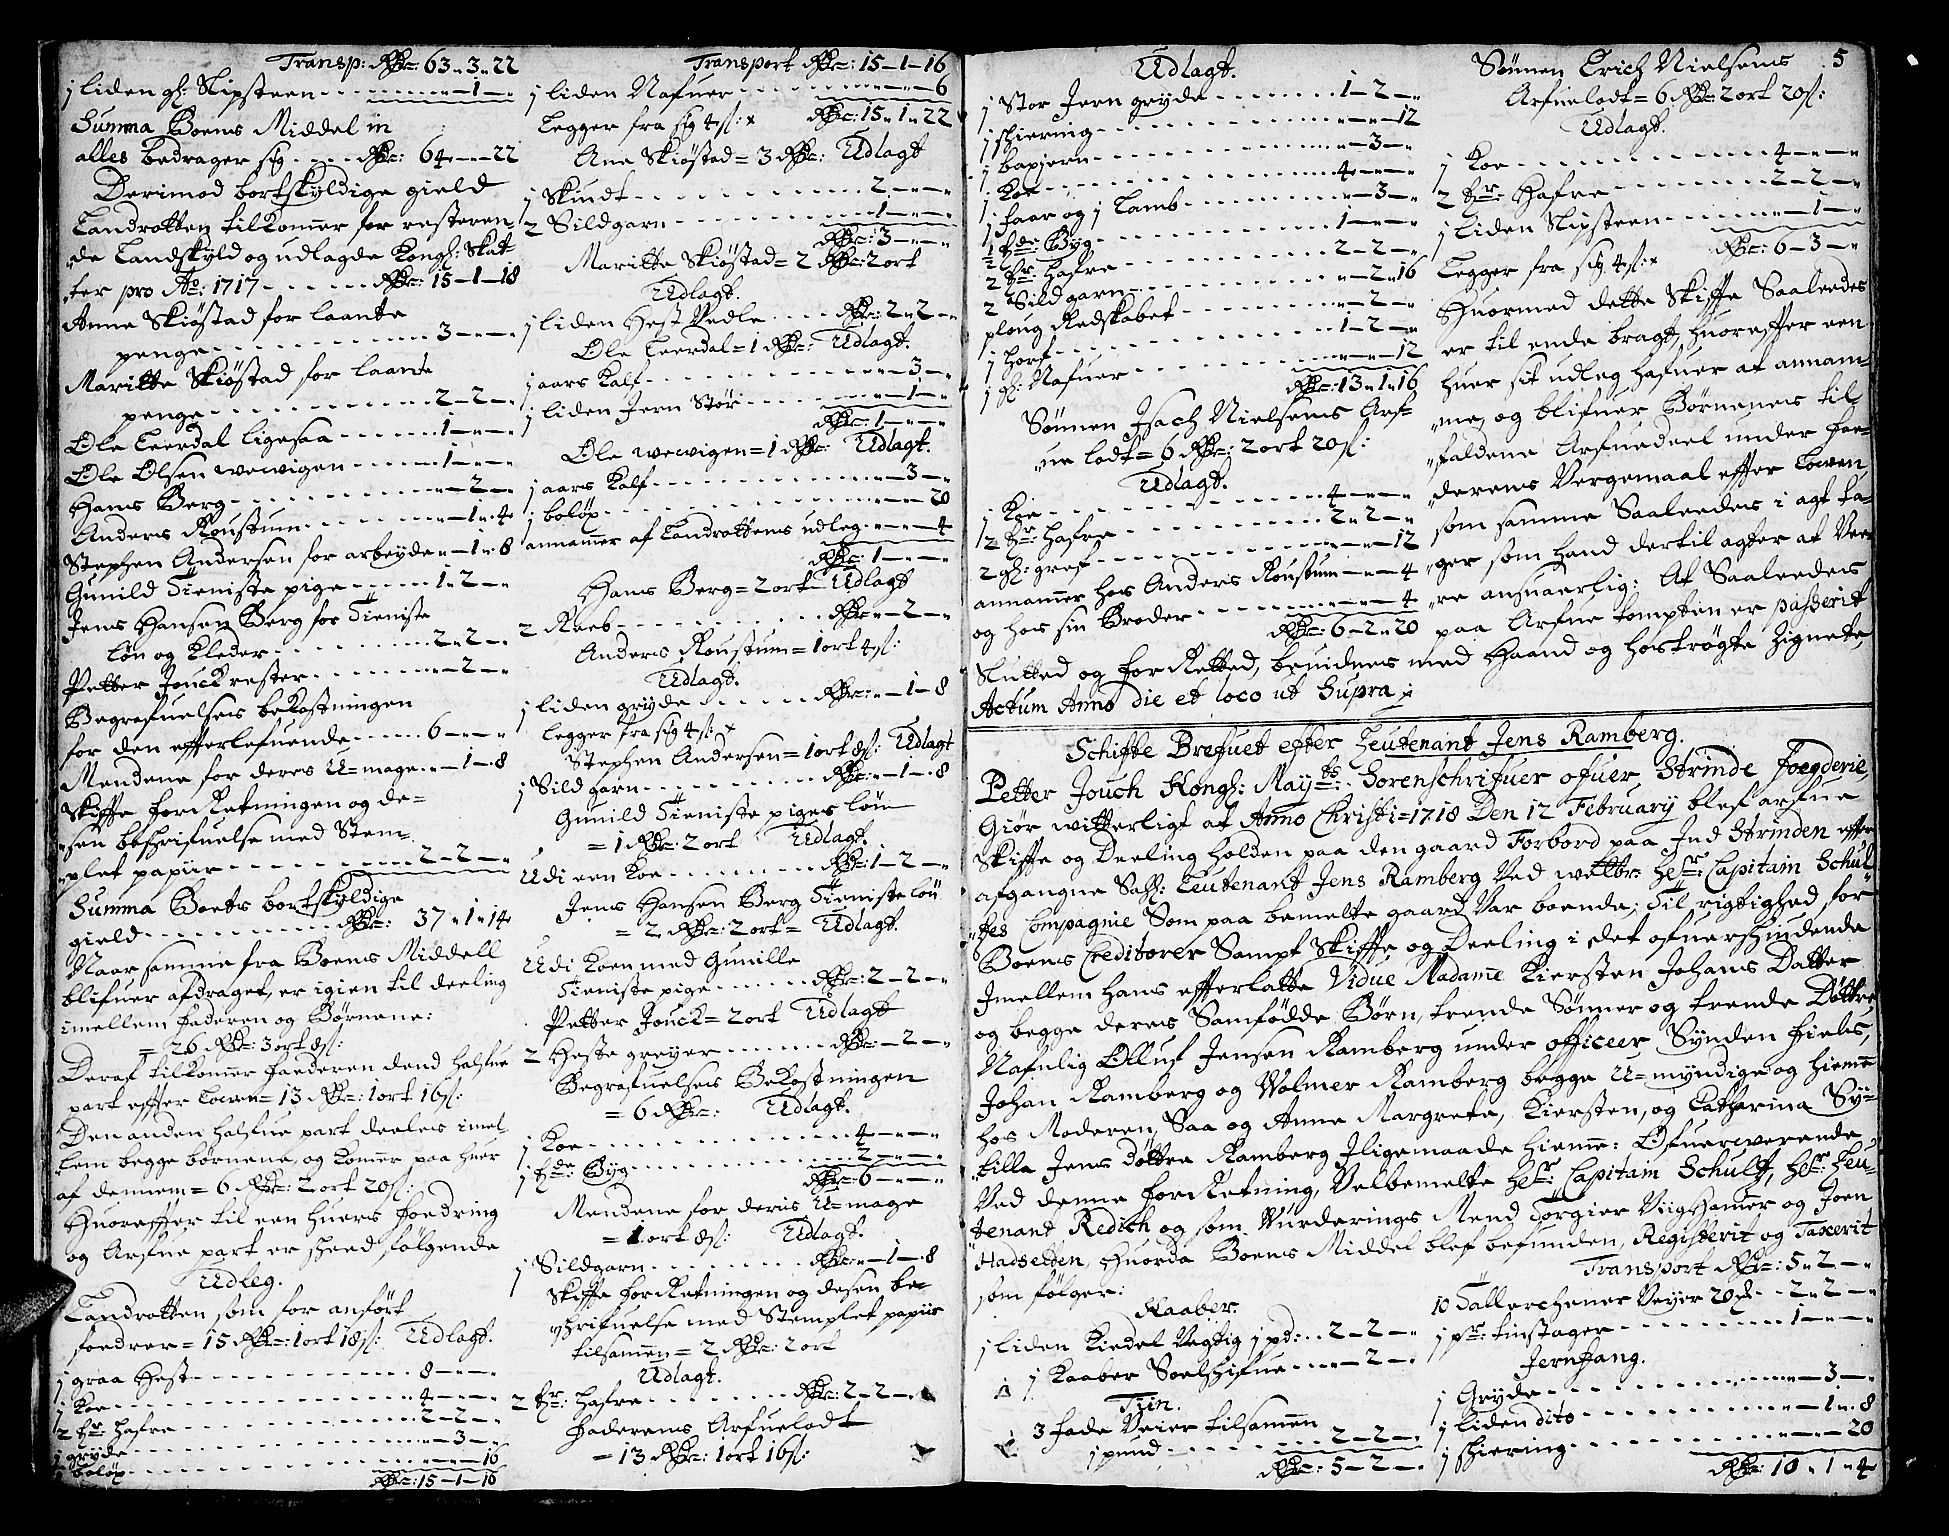 Transp: Rdr: 63 „ 3 „ 22
1 liden gl: Slipsteen - - - „ - 1 - „
Summa Boens Middel in
alles bedrager sig - - - Rdr: 64 - „ - 22
Derimod bortskyldige gield
Landrotten tilkommer for resteren-
„de Landskyld og udlagde Kongl: Skat-
„ter pro Ao: 1717 - - - Rdr: 15 - 1 - 18
Anne Skiøstad for laante
penge - - - 3 - „ - „
Maritte Skiøstad for laante
penge - - - 2 - 2 - „
Ole Leerdal ligesaa - - - 1 - „ - „
Ole Olsen wewigen - - - 1 - „ - „
Hans Berg - - - „ - 2 - „
Anders Roustum - - - „ - 1 „ 4
Stephen Andersen for arbeyde „ - 1 „ 8
Gunild Tieniste pige - - - 1 „ 2 - „
Jens Hansen Berg for Tieniste
Løn og Kleder - - - 2 „ 2 - „
Petter Jouck rester - - - „ - 2 - „
Begrafuelses bekostningen
for den efferlefuende - - - 6 - „ - „
Mendene for deres U=mage „ - 1 - 8
Skiffe forRetningen og de=
„sen beschrifuelse med Stem-
„plet papiir - - - 2 - 2 - „
Summa Boets bortskyldige
gield - - - Rdr: 37 „ 1 „ 14
Naar samme fra Boens Middell
blifuer afdraget, er igien til deeling
imellem Faderen og Børnene:
= 26 Rdr: 3 ort 8 s:
Deraf tilkommer Faederen dend halfue
part effter Lowen = 13 Rdr: 1 ort 16 s:
Den anden halfue part deeles imel-
„lem begge børnene, og kommer paa huer
af dennem = 6 Rdr: 2 ort 20 s:
Huoreffter til een huers foedring
og Arfue part er skeed følgende
Udleg.
Landrotten som for anført
foedrer = 15 Rdr: 1 ort 18 s: Udlagt.
1 graa Hest - - - 8 - „ - „
1 Koe - - - 4 - „ - „
2 tr: Hafre - - - 2 - 2 - „
1 gryde - - - „ - 3 - „
1 boløx - - - „ - „ - 16
Rdr: 15 - 1 - 16
Transport Rdr: 15 - 1 - 16
1 liden Nafuer - - - „ - „ - 6
Legger fra sig 4 s: x Rdr: 15 „ 1 „ 22
Ane Skiøstad = 3 Rdr: Udlagt
1 Skindt - - - 2 - „ - „
2 Sildgarn - - - 1 - „ - „
Rdr: 3 - „ - „
Maritte Skiøstad = 2 Rdr: 2 ort
Udlagt.
1 liden Hest Vedle - - - Rdr: 2 „ 2 - „
Ole Leerdal = 1 Rdr: Udlagt.
1 aars Kalf - - - „ - 3 - „
1 liden Jern Stør - - - „ - 1 - „
Rdr: 1 - „ - „
Ole wewigen = 1 Rdr: Udlagt.
1 aars Kalf - - - „ - 3 - „
1 boløx - - - „ - „ - 20
annammer af Landrottens udleg „ - „ - 4
Rdr: 1 - „ - „
Hans Berg = 2 ort Udlagt
2 Reeb - - - Rdr: „ - 2 - „
Anders Roustum = 1 ort 4 s:
Udlagt.
1 liden gryde - - - Rdr: „ - 1 - 8
Legger fra sig 4 s: x
Stephen Andersen = 1 ort 8 s: Udlagt
1 Sildgarn - - - Rdr: „ - 1 - 8
Gunild Tieniste piges løn
= 1 Rdr: 2 ort Udlagt.
Udi een Koe - - - Rdr: 1 - 2 - „
Jens Hansen Berg Tieniste løn
= 2 Rdr: 2 ort = Udlagt.
Udi Koen med Gunille
Tieniste pige - - - Rdr: 2 - 2 - „
Petter Jouck = 2 ort Udlagt
2 Heste greyer - - - Rdr: „ - 2 - „
Begrafuelses Bekostningen
= 6 Rdr: Udlagt.
1 Koe - - - 4 - „ - „
1 tde Byg - - - 2 - „ - „
Rdr: 6 - „ - „
Mendene for deris U=mage
= 1 ort 8 s: Udlagt.
1 Sildgarn - - - Rdr: „ - 1 - 8
Skiffte forRetningen og desen be-
„skrifuelse med Stemplet papiir
tilsamen = 2 Rdr: 2 ort
Udlagt.
2 tr: hafre - - - Rdr: 2 - 2 - „
Faderens Arfuelodt
= 13 Rdr: 1 ort 16 s:
Udlagt.
1 Stor Jern gryde - - - 1 - 2 - „
1 skierring - - - „ - „ - 12
1 baxjern - - - „ - 3 - „
1 Koe - - - 4 - „ - „
1 faar og 1 Lamb - - - „ - 3 - „
1/2 tde: Byg - - - 1 - „ - „
2 tr: hafre - - - 2 - 2 - „
2 Sildgarn - - - „ - 2 „ 16
ploug Redskabet - - - „ - 2 - „
1 horf - - - 1 - 2 - „
1 gl: Nafuer - - - „ - „ - 12
Rdr: 13 „ 1 „ 16
Sønnen Isach Nielsens Arf=
„ue lodt = 6 Rdr: 2 ort 20 s:
Udlagt.
1 Koe - - - 4 - „ - „
2 tr: hafre - - - 2 „ 2 - „
2 gl: gref - - - „ - „ - 12
annammer hos Anders Roustum „ - „ - 4
og hos sin Broder - - - „ - „ - 4
Rdr: 6 - 2 „ 20
Sønnen Erich Nielsens 5
Arfuelodt = 6 Rdr: 2 ort 20 s:
Udlagt.
1 Koe - - - 4 - „ - „
2 tr: Hafre - - - 2 - 2 - „
1 liden Slipsteen - - - „ - 1 - „
Rdr: 6 - 3 - „
Legger fra sig 4 s: x
Huormed dette Skiffte Saaleedes
er til ende bragt, huoreffter een
huer sit udleg hafuer at annam-
„me, og blifuer Børnenes til-
„faldene Arfuedeel under Fae-
„derens Vergemaal effter Lowen,
som samme Saaleedes i agt ta-
„ger som hand dertil agter at Ve-
„re ansuaerlig; At Saaleedes
paa Arfue tompten er passerit
Slutted og forRetted, beuidnes med Haand og hostrøgte Zignete,
Actum Anno die et loco ut Supra ;
Schiffte Brefuet effter Leutenant Jens Ramberg.
Petter Jouch Kongl: Mayts: Sorenschrifuer ofuer Strinde Foegderie,
Giør witterligt at Anno Christi = 1718 Den 12 February blef arfue
Skiffte og Deeling holden paa den gaard Forbord paa Ind Strinden effter
afgangne Sahl: Leutenant Jens Ramberg Ved welbr: Hr: Capitain Schul-
„tzes Compagnie Som paa bemelte gaard Var boende; Til rigtighed for
Boens Creditorer Sampt Skiffte og Deeling i det ofuerskydende
Imellem hans effterlatte Vidue Madame Kiersten Johans Datter
og begge deres Samfødde Børn, trende Sønner og trende Døttre
Nafnlig Olluf Jensen Ramberg under officeer Synden Fields,
Johan Ramberg og Wolmer Ramberg begge U=myndige og hiemme
hos Moderen, Saa og Anne Margrete, Kiersten, og Catharina Sy-
„tilla Jens døttre Ramberg Iligemaade hiemme: Ofuerwerende
Ved denne forRetning, Velbemelte Hr: Capitam Schultz, Hr: Leu-
„tenant Redich og som Wurderings Mend Torgier Viigshamer og Joen
Hadselden, Huorda Boens Middel blef befunden, Registerit og Taxerit
som følger:
Kaaber.
1 liden Kiedel Vegtig 1 pd: - - 2 - 2 - „
1 Kaaber Soelskifue - - - „ - 2 - „
Tiin.
3 fade Veier tilsamen
1 pund - - - 2 - 2 - „
Rdr: 5 - 2 - „
Transport Rdr: 5 „ 2 - „
10 Tallerchener Veyer 20 m - - 2 „ 2 - „
1 pr: tinstager - - - 1 - „ - „
Jernfang.
1 Gryde - - - „ - 3 - „
1 liden dito - - - „ - 1 „ 8
1 skierring - - - „ - „ - 20
Rdr: 10 „ 1 „ 4